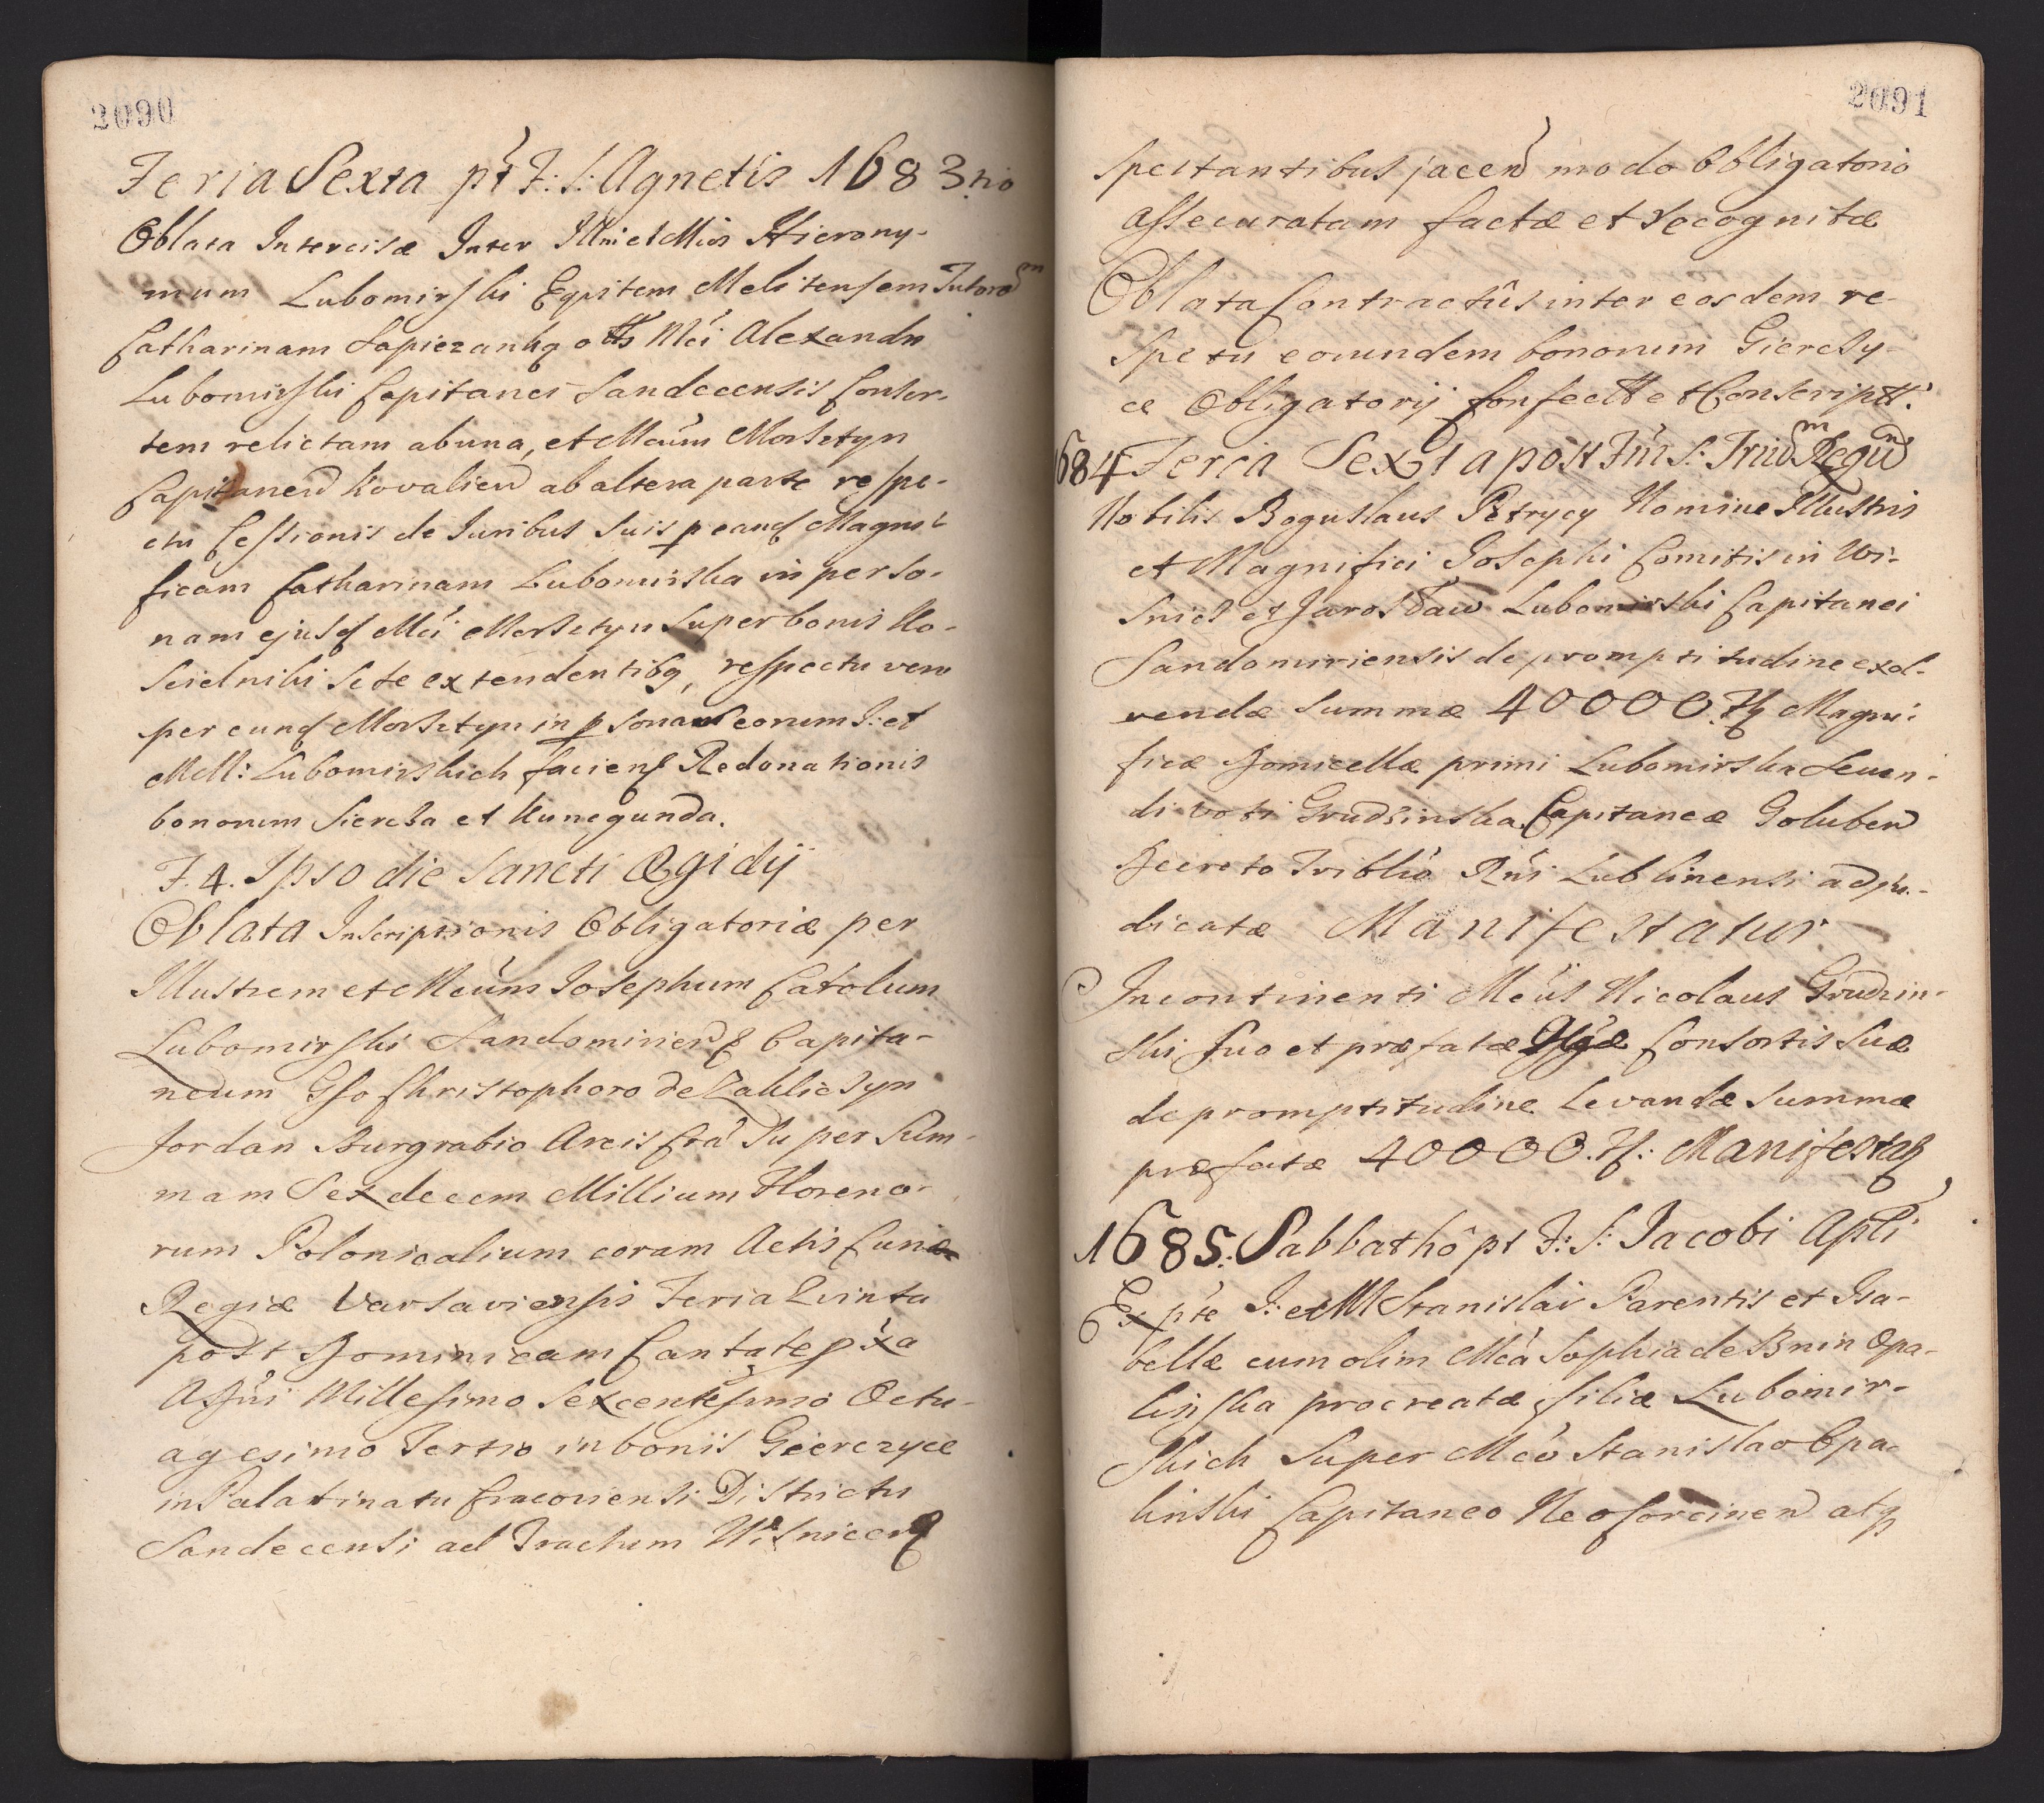 2090
Feria Sexta pt F: S: Agnetis 1683tio
Oblata Intercisæ Inter Illmi et Mcos Hierony-
mum Lubomirski Equitem Melitensem Tutorem
Catharinam Sapiezankq olts Mci Alexandri
Lubomirski Capitanei Sandecensis Conser-
tem relictam ab una, et Mcum Morsztyn
Capitanen Kovalien ab altera parte respe-
ctu Cessionis de Juribus suis p eand Magni-
ficam Catharinam Lubomirska in perso-
nam ejusd Mci Morsztyn super bonis Ko-
scielniki sete extendentibq, respectu vero
per eund Morsztyn in psonas eorum I: et
MM: Lubomirskich facien Redonationis
bonorum Siercza et Kunegunda.
F. 4. Ipso die Sancti Ægidÿ
Oblata Inscriptionis Obligatoriæ per
Illustrem et Mcum Josephum Carolum
Lubomirski Sandomirien Capita-
neum Gso Christophoro de Zakliczyn
Jordan Burgrabio Arcis Cra super sum-
mam Sexdecem Millium Floreno-
rum Polonicalium coram Actis Curiæ
Regiæ Varsaviensis Feria Quinta
post Dominicam Cantate pxa
A Dni Millesimo Sexcentesimo Octu-
agesimo Tertio in bonis Gierczyce
in Palatinatu Cracoviensi Districtu
Sandecensi ad Tractum Wisnicen
2091
spectantibus jacen modo Obligatorio
assecuratam factæ et recognitæ
Oblata Contractûs inter eosdem re-
spectu eorundem bonorum Gierczy-
ce Obligatorÿ Confectt et Conscriptt.
1684 Feria Sexta post Fm S: Trium Regum
Nobilis Boguslaus Petrycy Nomine Illustris
et Magnifici Josephi Comitis in Wi-
snicz et Jarosław Lubomirski Capitanei
Sandomiriensis de promptitudine exol-
vendæ summæ 40000. ff Magni-
ficæ Domicellæ primi Lubomirska Secun-
di voti Grudzinska Capitaneæ Goluben
Decreto Triblio Rni Lublinensi adju-
dicatæ Manifestatur
Incontinenti Mcus Nicolaus Grudzin-
ski suo et præfatæ Gsæ Consortis suæ
de promptitudine levandæ summæ
præfatæ 40000. ff: Manifestatq
1685. Sabbathô pt F: S: Jacobi Apli
Ex pte I: et M Stanislai Parentis et Isa-
bellæ cum olim Mca Sophia de Bnin Opa-
linska procreatæ filiæ Lubomir-
skich super Mco Stanislao Opa-
linski Capitaneo Neoforcinen atq